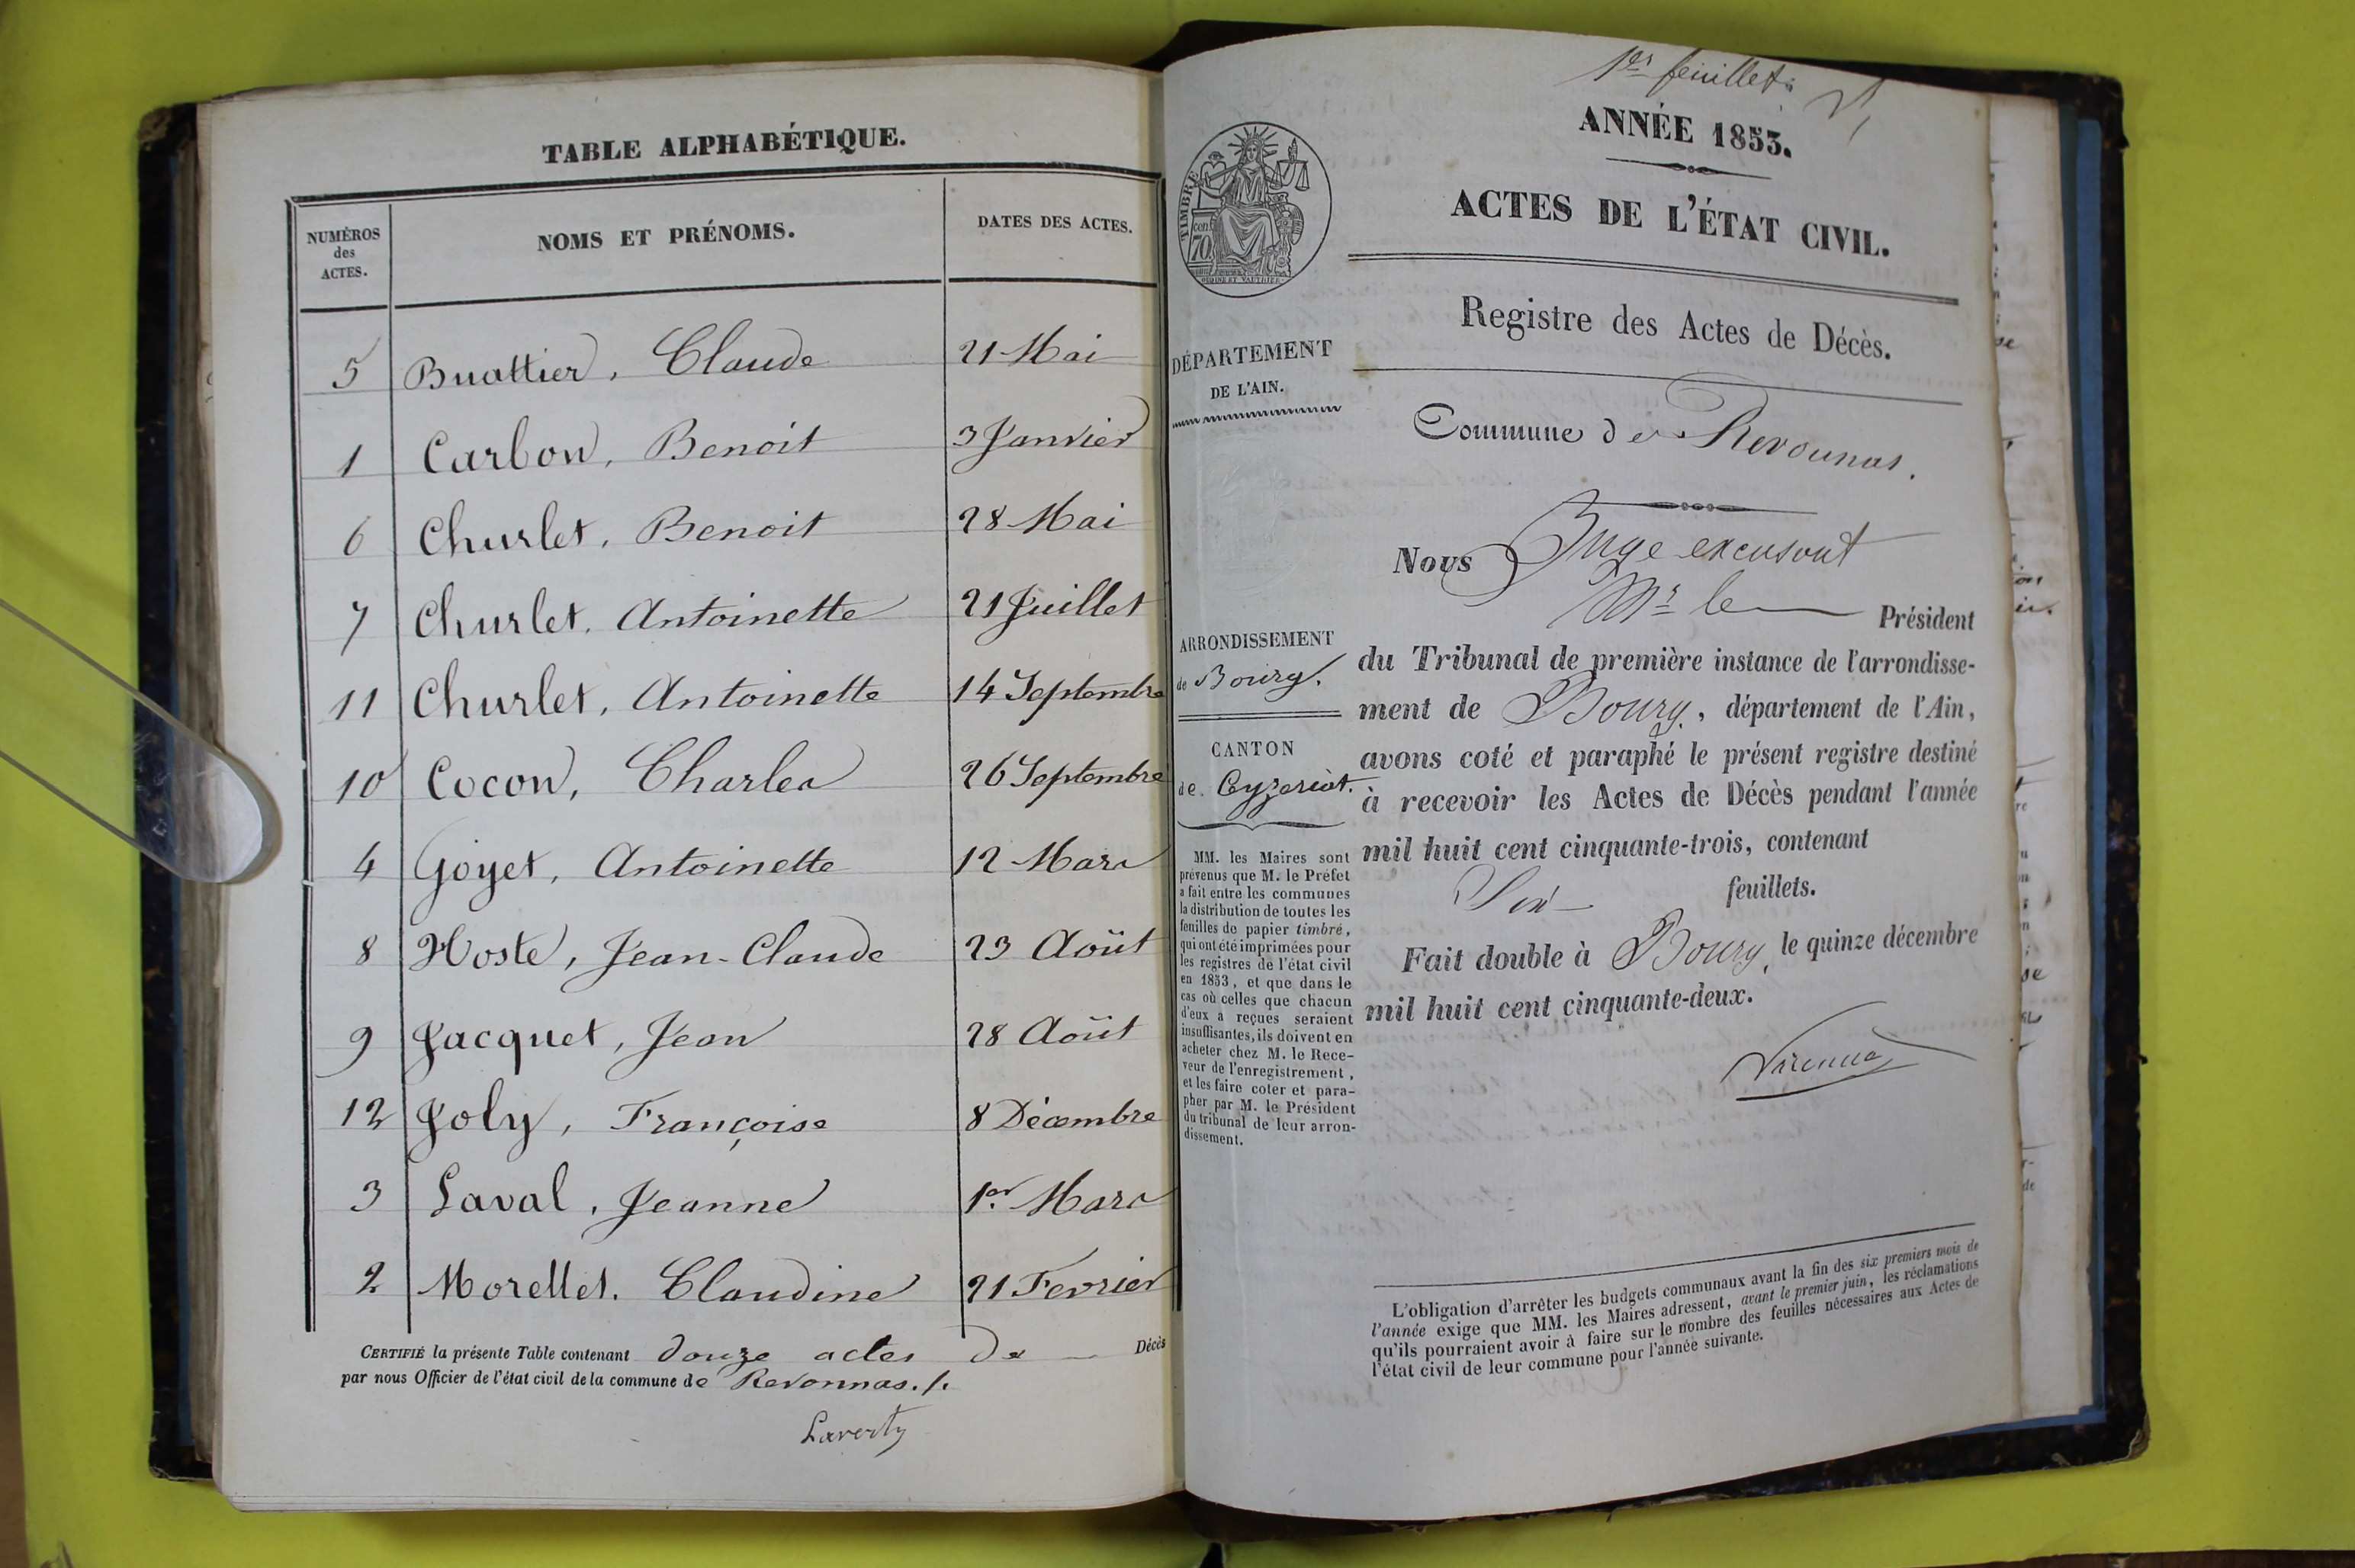 TABLE ALPHABÉTIQUE.
NUMÉROS des ACTES. NOMS ET PRÉNOMS. DATES DES ACTES.
5 Buattier, Claude 21 Mai
1 Carbon, Benoit 3 Janvier
6 Churlet, Benoit 28 Mai
7 Churlet, Antoinette 21 Juillet
11 Churlet, Antoinette 14 Septembre
10 Cocon, Charles 26 Septembre
4 Goyet, Antoinette 12 Mars
8 Hoste, Jean-Claude 23 Août
9 Jacquet, Jean 28 Août
12 Joly, Françoise 8 Décembre
3 Laval, Jeanne 1er Mars
2 Morellet, Claudine 21 Fevrier
CERTIFIÉ la présente Table contenant douze actes de Décès
par nous Officier de l'état civil de la commune de Revonnas./.
1er feuillet
ANNÉE 1853.
ACTES DE L'ÉTAT CIVIL.
TIMBRE
70 cent
Registre des Actes de Décès.
DÉPARTEMENT
DE L'AIN.
Commune de Revonnas.
Nous Juge excusant
Mr le Président
du Tribunal de première instance de l'arrondisse-
ment de Bourg, département de l'Ain,
avons coté et paraphé le présent registre destiné
à recevoir les Actes de Décès pendant l'année
mil huit cent cinquante-trois, contenant
feuillets.
Fait double à Bourg, le quinze décembre
mil huit cent cinquante-deux.
ARRONDISSEMENT
de Bourg.
CANTON
de Ceyzeriat.
MM. les Maires sont
prévenus que M. le Préfet
a fait entre les communes
la distribution de toutes les
feuilles de papier timbré,
qui ont été imprimées pour
les registres de l'état civil
en 1853, et que dans le
cas où celles que chacun
d'eux a reçues seraient
insuffisantes, ils doivent en
acheter chez M. le Rece-
veur de l'enregistrement,
et les faire coter et para-
pher par M. le Président
du tribunal de leur arron-
dissement.
L'obligation d'arrêter les budgets communaux avant la fin des six premiers mois de
l'année exige que MM. les Maires adressent, avant le premier juin, les réclamations
qu'ils pourraient avoir à faire sur le nombre des feuilles nécessaires aux Actes de
l'état civil de leur commune pour l'année suivante.